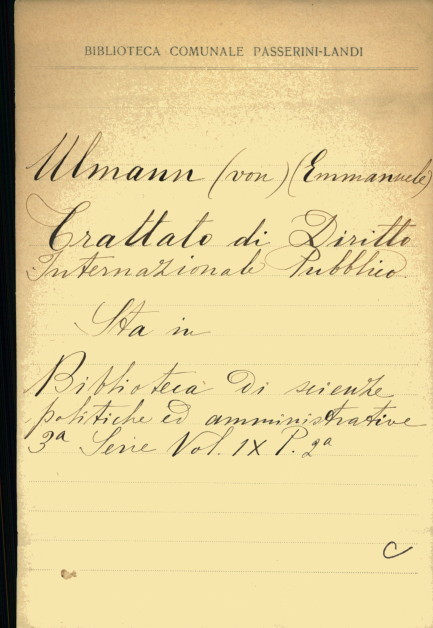 BIBLIOTECA COMUNALE PASSERINI-LANDI
Ulmann (von) (Emmanuele)
Trattato di Diritto
Internazionale Pubblico
Sta in
Biblioteca di scienze
politiche ed amministrative
3ª Serie Vol. IX P. 2ª
C